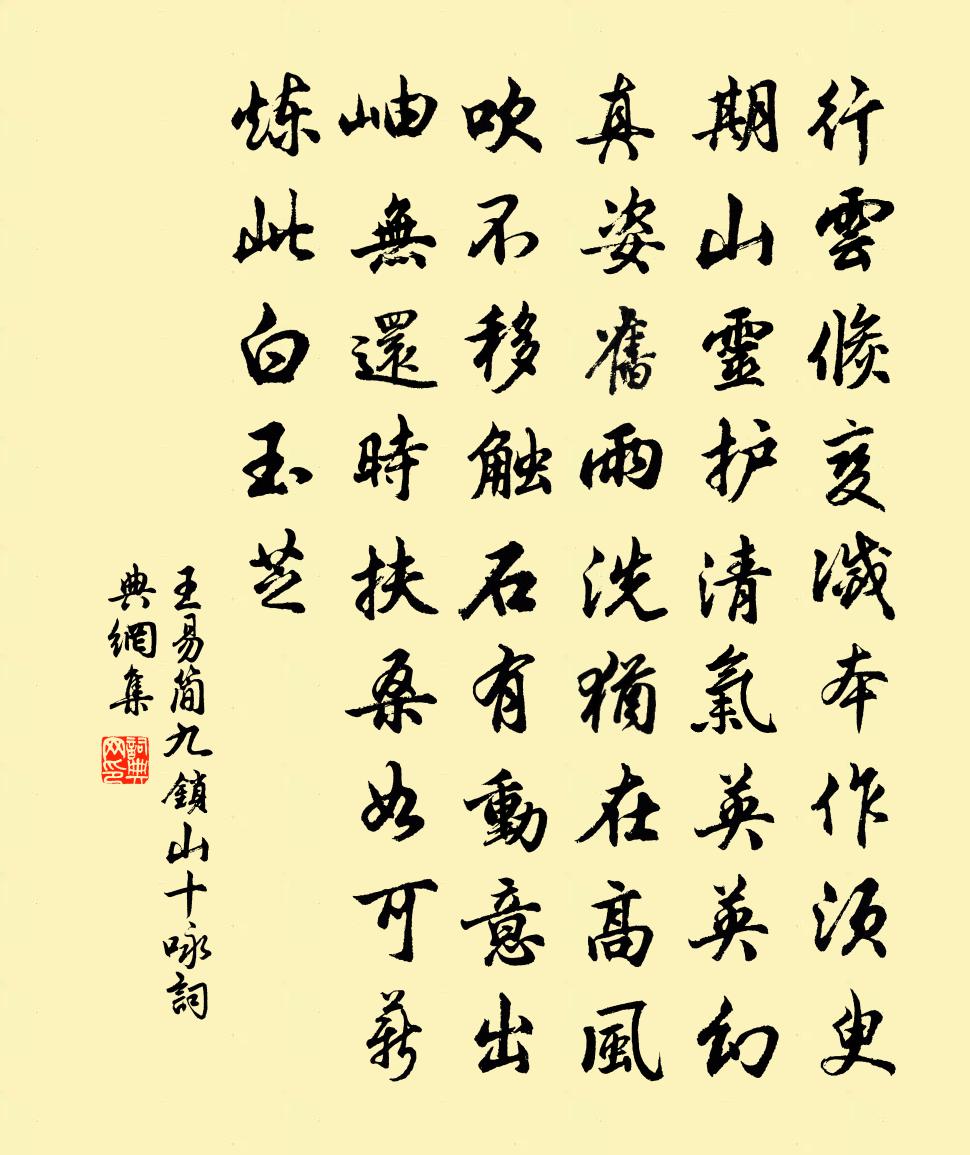 行雲倐变滅本作須臾
期山靈护清氣英英幻
真姿舊雨洗猶在高風
吹不移触石有動意出
岫無還時扶桑如可薪
炼此白玉芝
王易简九鎖山十咏詞
典網集
詞典网印